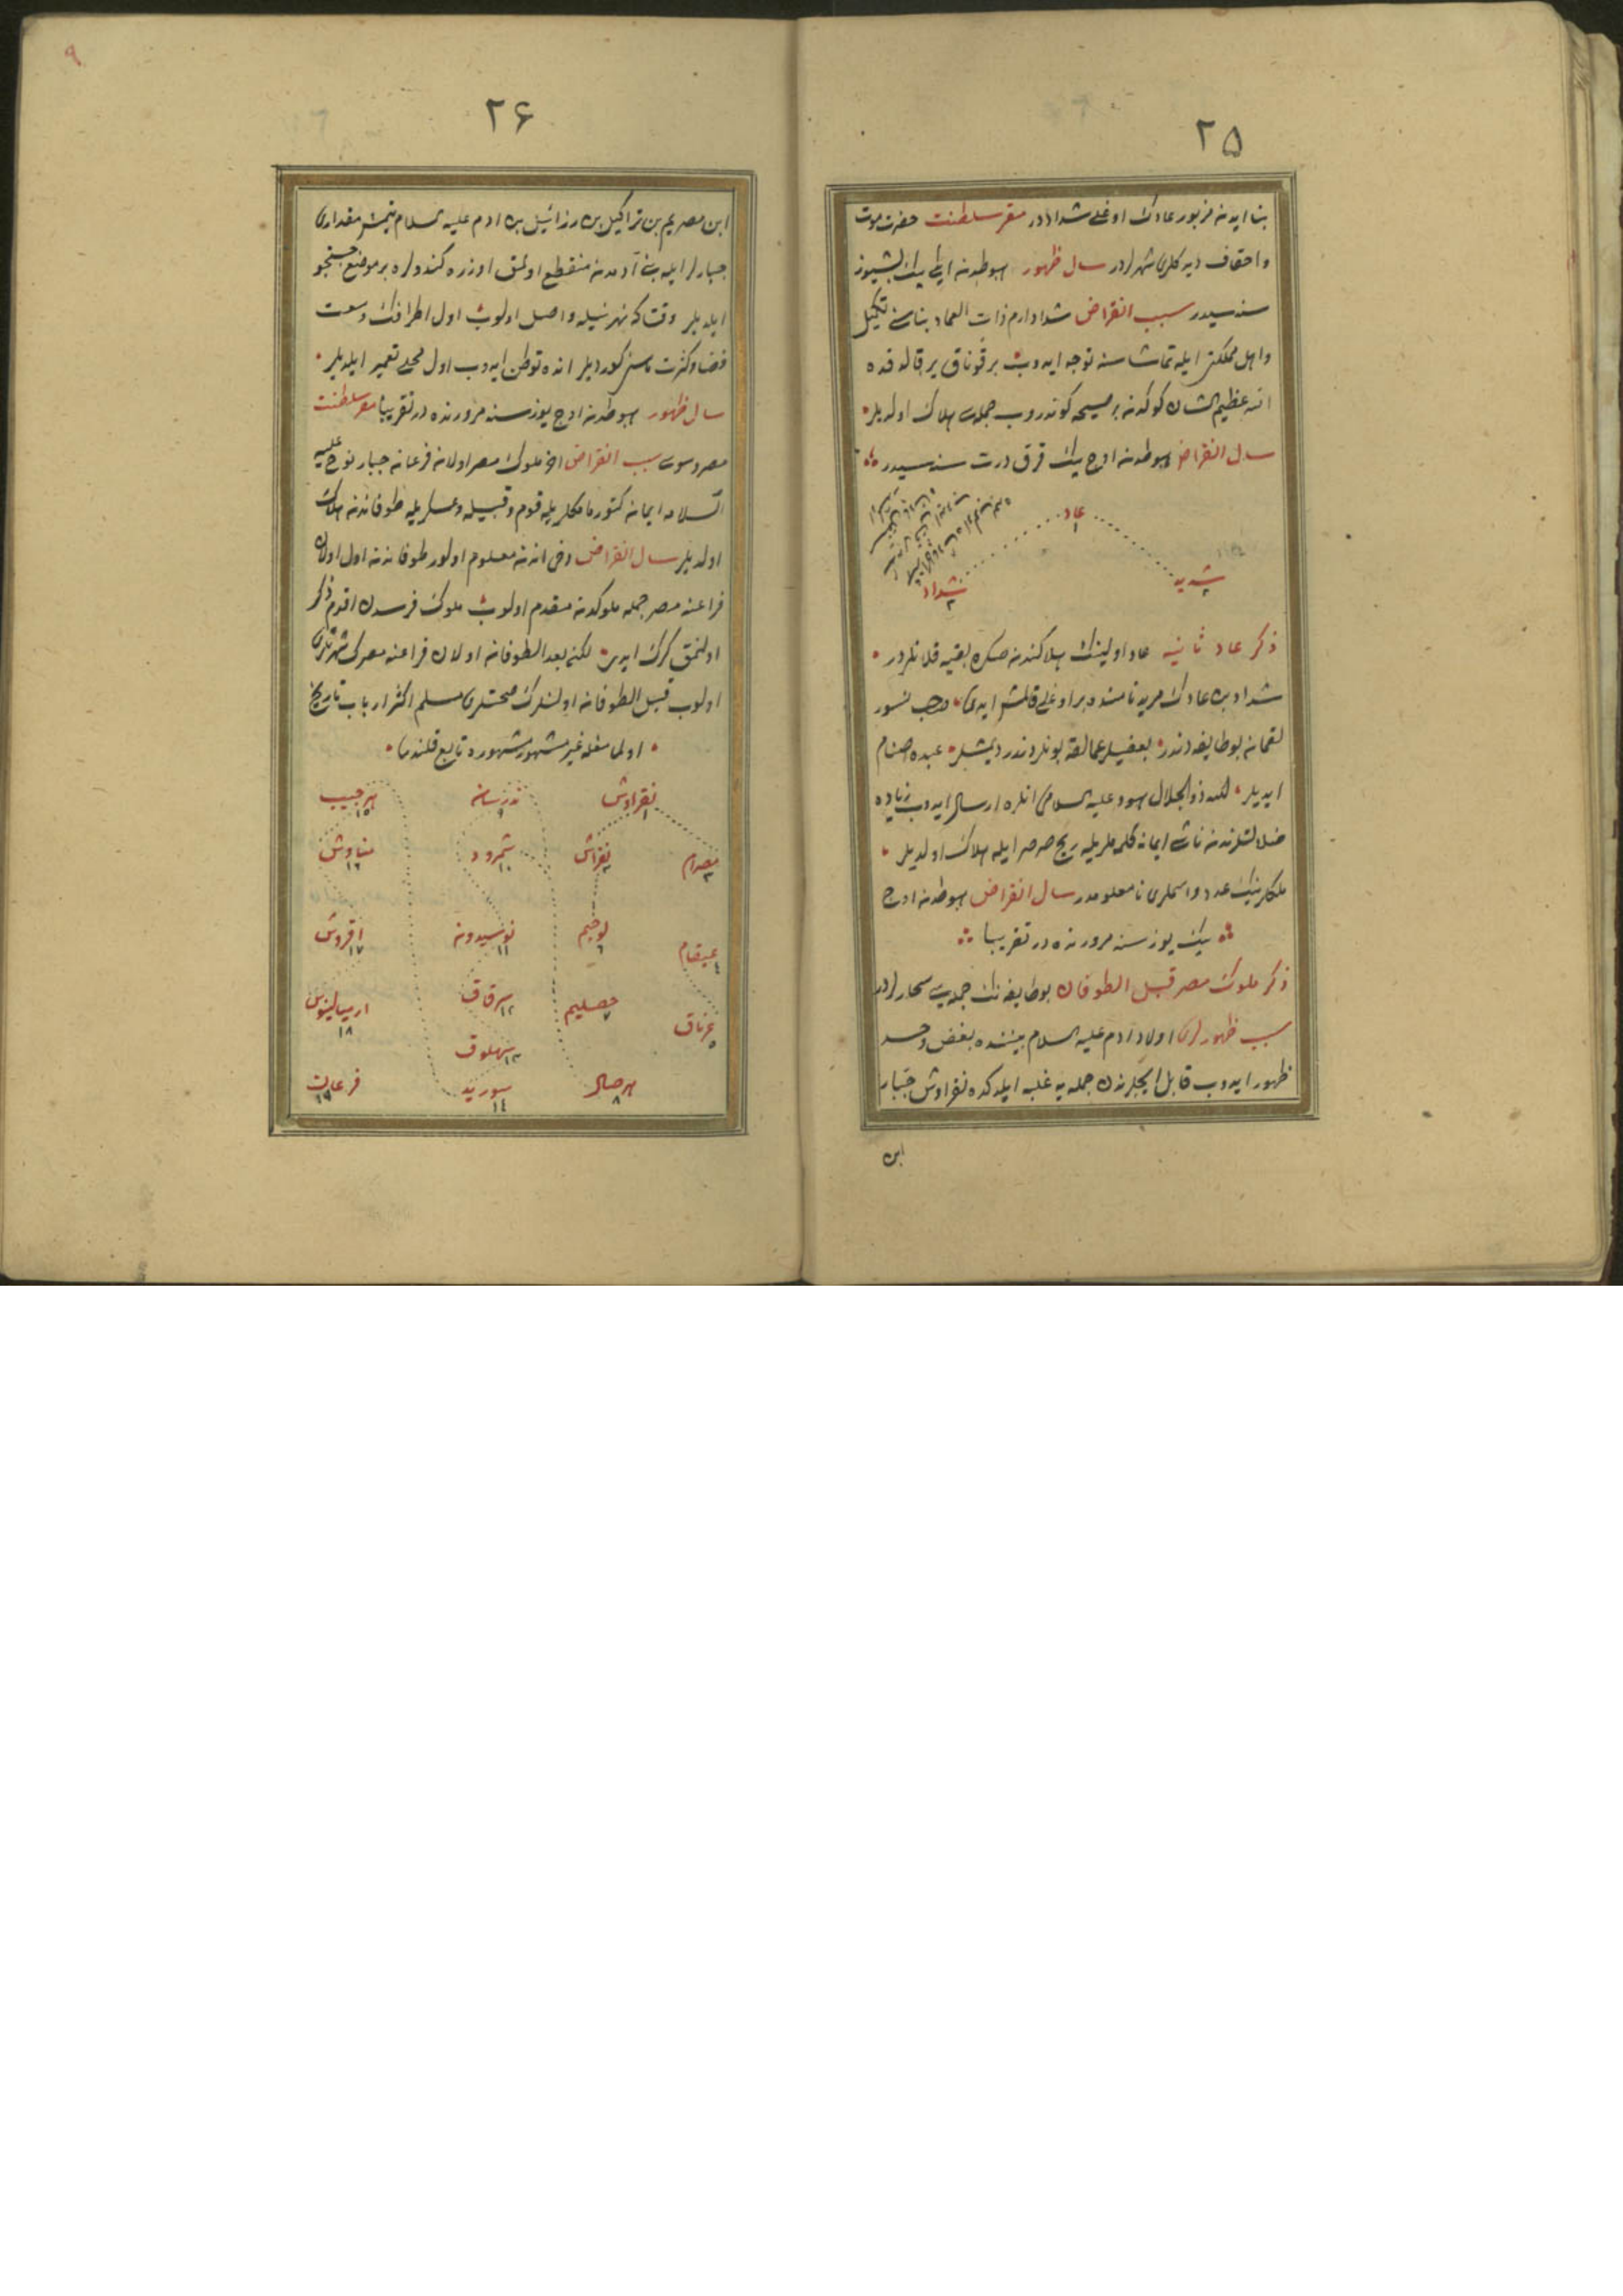 ٢٥
بنا ایدن مزبور عادك اوغلی شداددر مقر سلطنت حضرت موت
واحقاف دیه كلری شهرلردر سال ظهور هبوطدن ایكی بیك بشیوز
سنه سیدر سبب انقراض شداد ارم ذات العماد بناسن تكمیل
واهل مملكتی ایله تماشاسنه توجه ایدوب بر قوناق یر قالدقده
الله عظیم الشان كوكدن بر صیحه كوندروب جمله سی هلاك اولدیلر
سال انقراض هبوطدن اوچ بیك قرق درت سنه سیدر
عاد
١
شدید
٢
شداد
٣
ذكر عاد ثانیه عاد اولینك هلاكندن صكره بقیه قلانلردر
شداد بن عادك مرید نامنده بر اوغلی قالمش ایدی صاحب نسور
لقمان بو طایفه دندر بعضیلر عمالقه بونلردندر دیمشلر عبده اصنام
ایدیلر الله ذو الجلال هود علیه السلامی انلره ارسال ایدوب زیاده
ضلالتلرندن ناشی ایمانه كلمملریله ریح صرصر ایله هلاك اولدیلر
ملكلرینك عدد واسملری نامعلومدر سال انقراض هبوطدن اوچ
بیك یوز سنه مرورنده در تقریبا
ذكر ملوك مصر قبل الطوفان بو طایفه نك جمله سی سحارلردر
سبب ظهورلری اولاد آدم علیه السلام بیننده بغض وحسد
ظهور ایدوب قابل ایچلرندن جمله یه غلبه ایلدكده نقراوش جبار
ابن
٩
٢۶
ابن مصریم بن براكیل بن رزائیل بن ادم علیه السلام یتمش مقداری
جبارلر ایله بنی آدمدن منقطع اولمق اوزره كندولره بر موضع جستجو
ایلدیلر وقتا كه نهر نیله واصل اولوب اول اطرافك وسعت
فضا وكثرت ماسن كوردیلر انده توطن ایدوب اول محلی تعمیر ایلدیلر
سال ظهور هبوطدن اوچ یوز سنه مرورنده در تقریبا مقر سلطنت
مصر و سوسی سبب انقراض اخر ملوك مصر اولان فرعان جبار نوح علیه
السلامه ایمان كتورمامكلریله قوم وقبیله وعسكریله طوفاندن هلاك
اولدیلر سال انقراض دخی اندن معلوم اولور طوفاندن اول اولان
فراعنه مصر جمله ملوكدن مقدم اولوب ملوك فرسدن اقدم ذكر
اولنمق كرك ایدی لكن بعد الطوفان اولان فراعنه مصرك شهرتلری
اولوب قبل الطوفان اولنلرك صحتلری مسلم اكثر ارباب تاریخ
اولمامغله غیر مشهور مشهوره تابع قلندی
نقراوش
١
ندرسان
٩
هرجیب
١٥
مصرام
٣
نقراش
٢
شمرود
١٠
مناوش
١٦
عیقام
٤
لوجیم
٦
نوسیدون
١١
افروش
١٧
عرناق
٥
خصلیم
٧
سرقاق
١٢
ارمیالینوس
١٨
سهلوق
١٣
هرصال
٨
سورید
١٤
فرعان
١٩